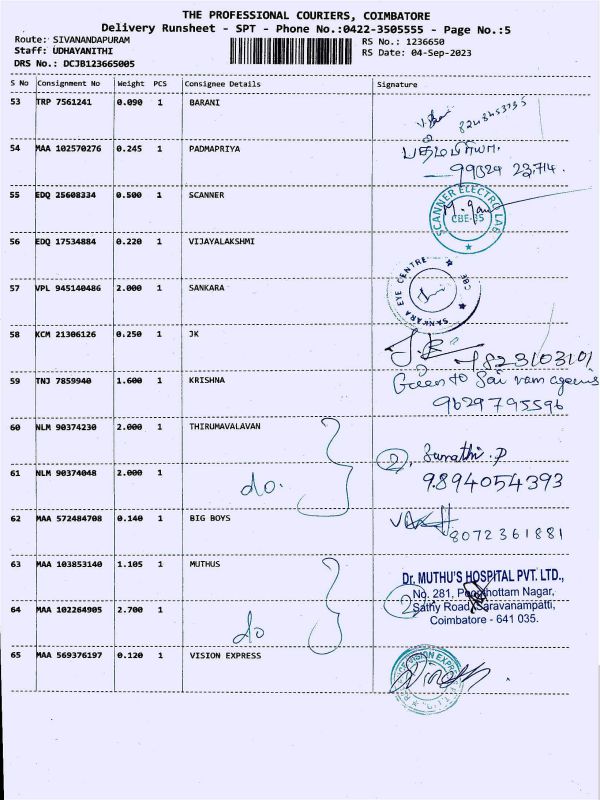 THE PROFESSIONAL COURIERS, COIMBATORE
Delivery Runsheet - SPT - Phone No.:0422-3505555 - Page No.:5
Route: SIVANANDAPURAM
RS No.: 1236650
Staff: UDHAYANITHI
RS Date: 04-Sep-2023
DRS No.: DCJB123665005
S No Consignment No Weight PCS Consignee Details Signature
53 TRP 7561241 0.090 1 BARANI
54 MAA 102570276 0.245 1 PADMAPRIYA பத்மபிரியா.
55 EDQ 25608334 0.500 1 SCANNER SCANNER ELECTRO LAB CBE-35
56 EDQ 17534884 0.220 1 VIJAYALAKSHMI
57 VPL 945140486 2.000 1 SANKARA SANKARA EYE CENTRE CBE
58 KCM 21306126 0.250 1 JK
59 TNJ 7859940 1.600 1 KRISHNA Green to Sai ram
9629795596
60 NLM 90374230 2.000 1 THIRUMAVALAVAN 2, Sumathi. P
61 NLM 90374048 2.000 1 do. 9894054393
62 MAA 572484708 0.140 1 BIG BOYS 8072361881
63 MAA 103853140 1.105 1 MUTHUS Dr. MUTHU'S HOSPITAL PVT. LTD.,
No. 281, Nagar,
64 MAA 102264905 2.700 1 do 2 Sathy Road, Saravanampatti,
Coimbatore - 641 035.
65 MAA 569376197 0.120 1 VISION EXPRESS VISION EXPRESS